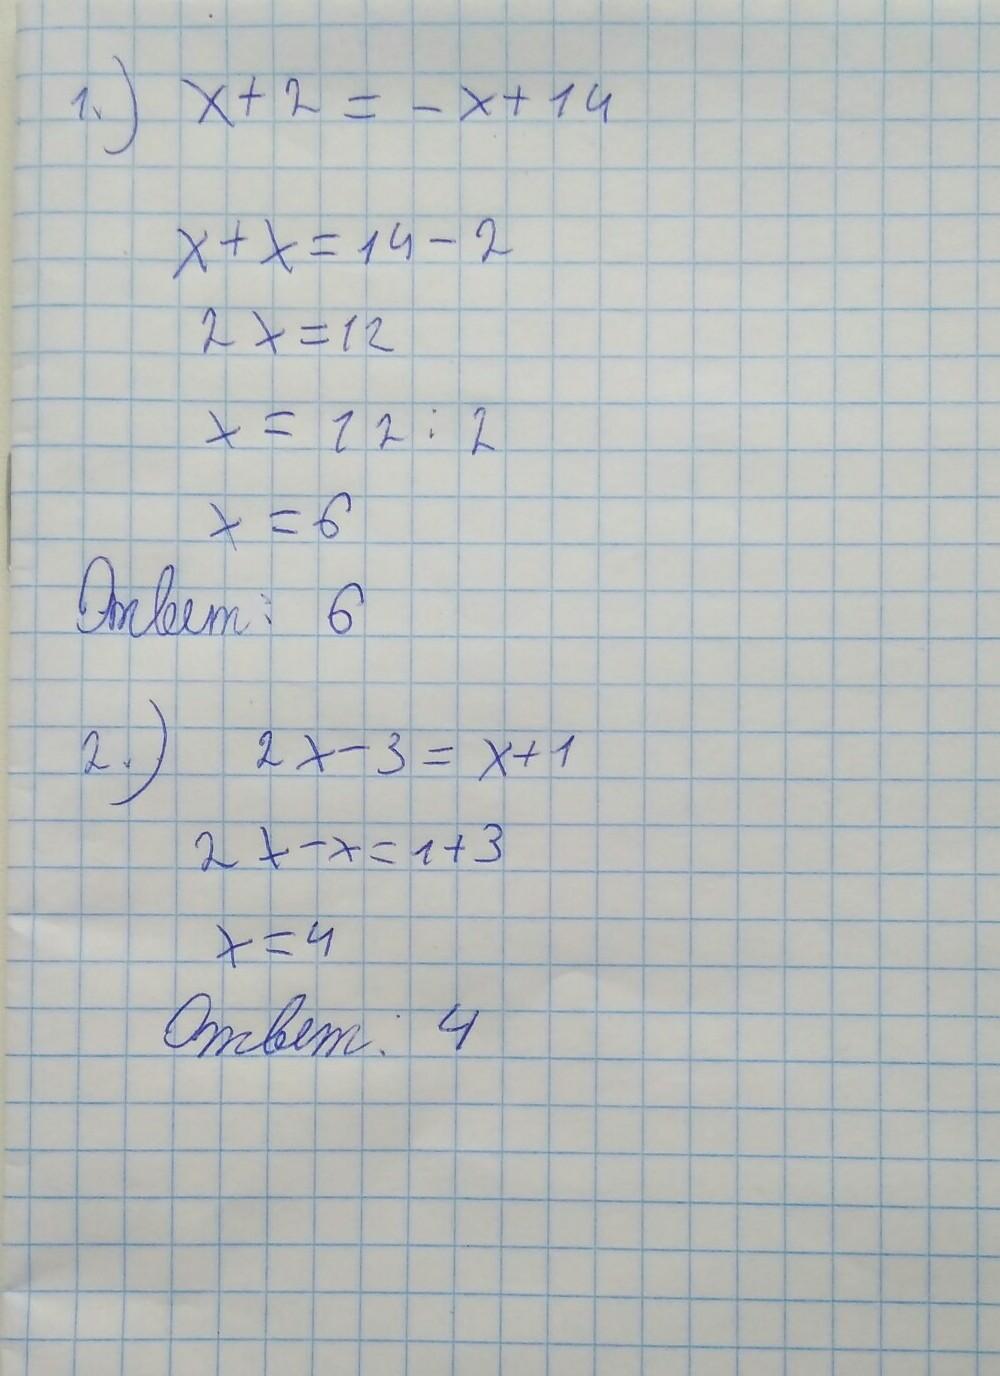 1.) x+2=-x+14
x+x=14-2
2x=12
x=12:2
x=6
Ответ: 6
2.) 2x-3=x+1
2x-x=1+3
x=4
Ответ: 4